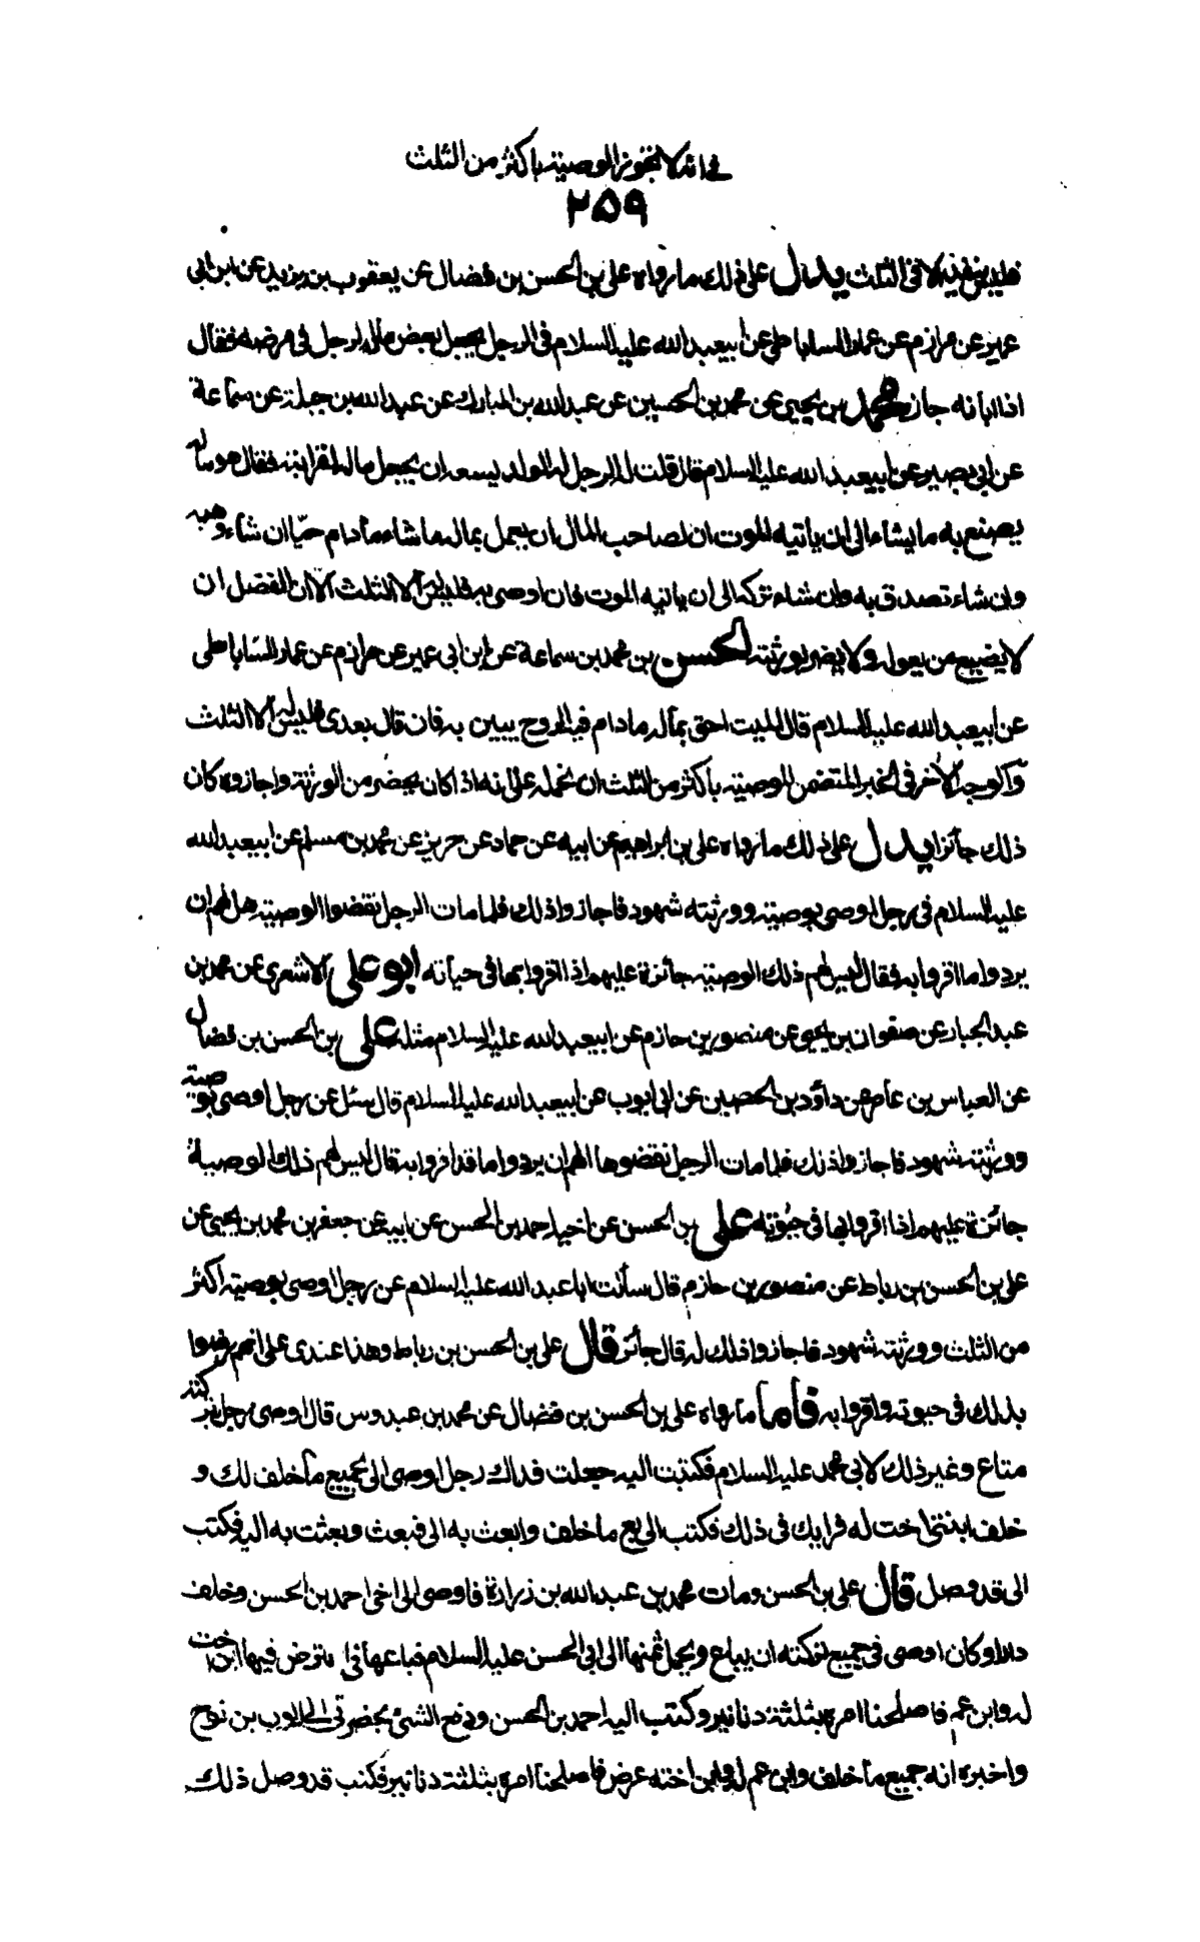 في انه لا تجوز الوصية باكثر من الثلث
٢٥٩
فليس فيه الا في الثلث يدل على ذلك ما رواه علي بن الحسن بن فضال عن يعقوب بن يزيد عن ابن ابي
عمير عن مرازم عن عمار الساباطي عن ابيعبد الله عليه السلام في الرجل يجعل بعض ماله لرجل في مرضه فقال
اذا ابانه جاز محمد بن يحيى عن محمد بن الحسين عن عبد الله بن المبارك عن عبد الله بن جبلة عن سماعة
عن ابي بصير عن ابيعبد الله عليه السلام قال قلت له الرجل له الولد يسعه ان يجعل ماله لقرابته فقال هو ماله
يصنع به ما يشاء الى ان ياتيه الموت ان لصاحب المال ان يعمل بماله ما شاء ما دام حيّا ان شاء وهبه
وان شاء تصدق به وان شاء تركه الى ان ياتيه الموت فان اوصى به فليس له الا الثلث الا ان الفضل ان
لا يضيع من يعوله ولا يضر بورثته الحسن بن محمد بن سماعة عن ابن ابي عمير عن مرازم عن عمار الساباطي
عن ابيعبد الله عليه السلام قال الميت احق بماله ما دام فيه الروح يبين به فان قال بعدي فليس له الا الثلث
والوجه الآخر في الخبر المتضمن للوصية باكثر من الثلث ان نحمله على انه اذا كان بحضر من الورثة واجازوه كان
ذلك جائزا يدل على ذلك ما رواه علي بن ابراهيم عن ابيه عن حماد عن حريز عن محمد بن مسلم عن ابيعبد الله
عليه السلام في رجل اوصى بوصية وورثته شهود فاجازوا ذلك فلما مات الرجل نقضوا الوصية هل لهم ان
يردوا ما اقروا به فقال ليس لهم ذلك الوصية جائزة عليهم اذا اقروا بها في حياته ابو علي الاشعري عن محمد بن
عبد الجبار عن صفوان بن يحيى عن منصور بن حازم عن ابيعبد الله عليه السلام مثله علي بن الحسن بن فضال
عن العباس بن عامر عن داود بن الحصين عن ابي ايوب عن ابيعبد الله عليه السلام قال سئل عن رجل اوصى بوصية
وورثته شهود فاجازوا ذلك فلما مات الرجل نقضوها الهم ان يردوا ما قد اقروا به قال ليس لهم ذلك الوصية
جائزة عليهم اذا اقروا بها في حيوته علي بن الحسن عن اخيه احمد بن الحسن عن ابيه عن جعفر بن محمد بن يحيى عن
علي بن الحسن بن رباط عن منصور بن حازم قال سألت ابا عبد الله عليه السلام عن رجل اوصى بوصية اكثر
من الثلث وورثته شهود فاجازوا ذلك له قال جائز قال علي بن الحسن بن رباط وهذا عندي على انهم رضوا
بذلك في حيوته واقروا به فاما ما رواه علي بن الحسن بن فضال عن محمد بن عبدوس قال اوصى رجل بتركته
متاع وغير ذلك لابي محمد عليه السلام فكتبت اليه جعلت فداك رجل اوصى الى بجميع ما خلف لك و
خلف ابنتى اخت له فرايك في ذلك فكتب الى بع ما خلف وابعث به الى فبعث وبعثت به اليه فكتب
الى قد وصل قال علي بن الحسن ومات محمد بن عبد الله بن زرارة فاوصى الى اخي احمد بن الحسن وخلف
دارا وكان اوصى في جميع تركته ان يباع ويحمل ثمنها الى ابي الحسن عليه السلام فباعها فاعترض فيها ابن اخت
له وابن عم فاصلحنا امره بثلثة دنانير وكتب اليه احمد بن الحسن ودفع الشئ بحضرتى الى ايوب بن نوح
واخبره انه جميع ما خلف وابن عم له وابن اخته عرض فاصلحنا امره بثلثة دنانير فكتب قد وصل ذلك